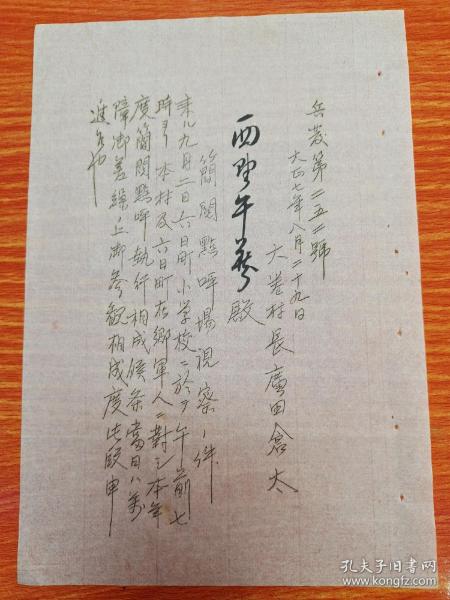 兵発第二五二號
大正七年八月二十九日
大巻村長 廣田倉太
殿
簡閲點呼場視察ノ件
来ル九月二日六日町小学校ニ於テ午前七
時ヨリ本村及六日町在郷軍人ニ對シ本年
度簡閲點呼執行相成候条當日ハ萬
障御差繰ノ上御参観相成度此段申
進候也
孔夫子旧书网
www.kongfz.com